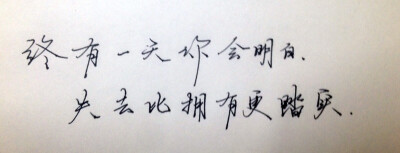 终有一天你会明白.
失去比拥有更踏实.